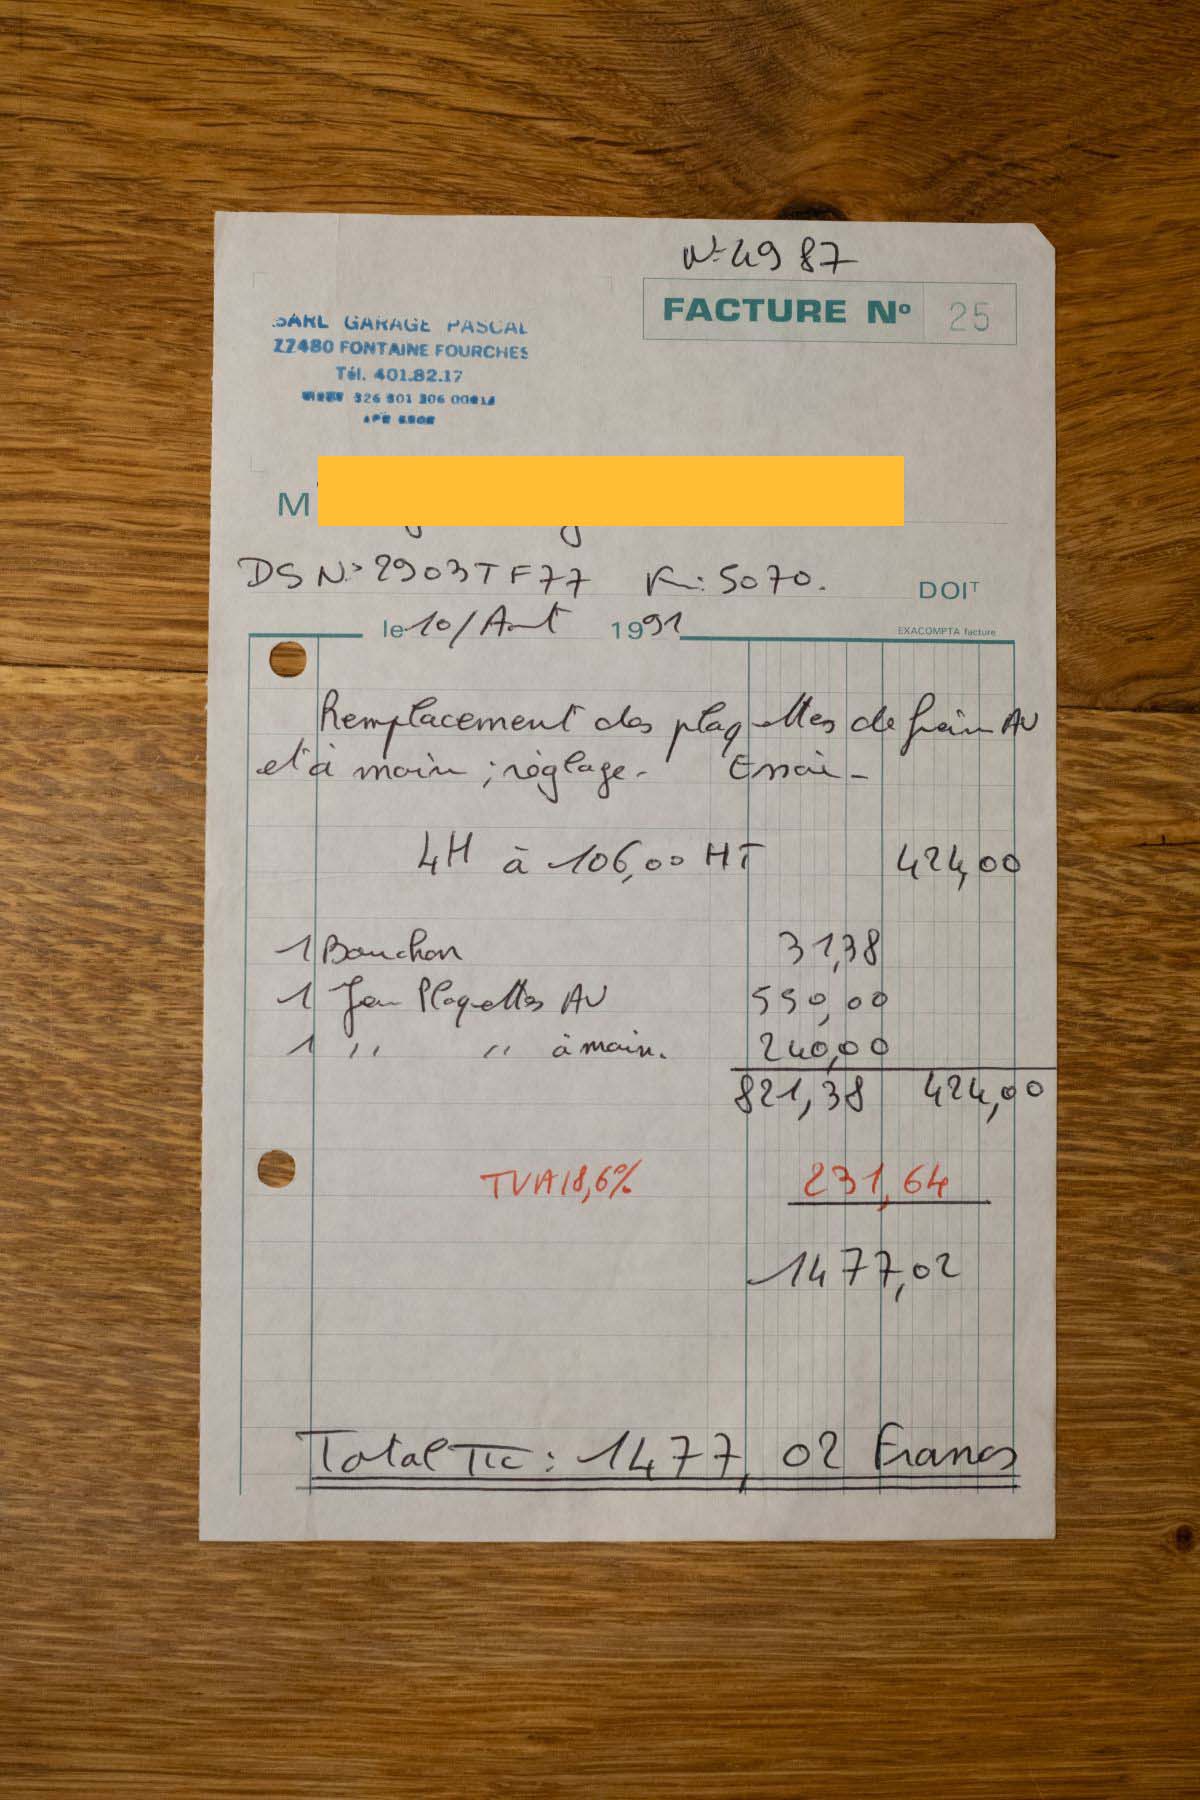 N° 4987
FACTURE Nº 25
SARL GARAGE PASCAL
77480 FONTAINE FOURCHES
Tél. 401.82.17
326 301 306 00014
APE
M
DS N° 2903TF77 K: 5070.
DOIT
le 10/Aout 1991
EXACOMPTA facture
Remplacement des plaquettes de frein AV
et à main ; réglage. Essai -
4H à 106,00 HT 424,00
1 Bouchon 31,38
1 Jeu Plaquettes AV 550,00
1 ,, ,, à main. 240,00
821,38 424,00
TVA 18,6% 231,64
1477,02
Total TTC : 1477,02 Francs